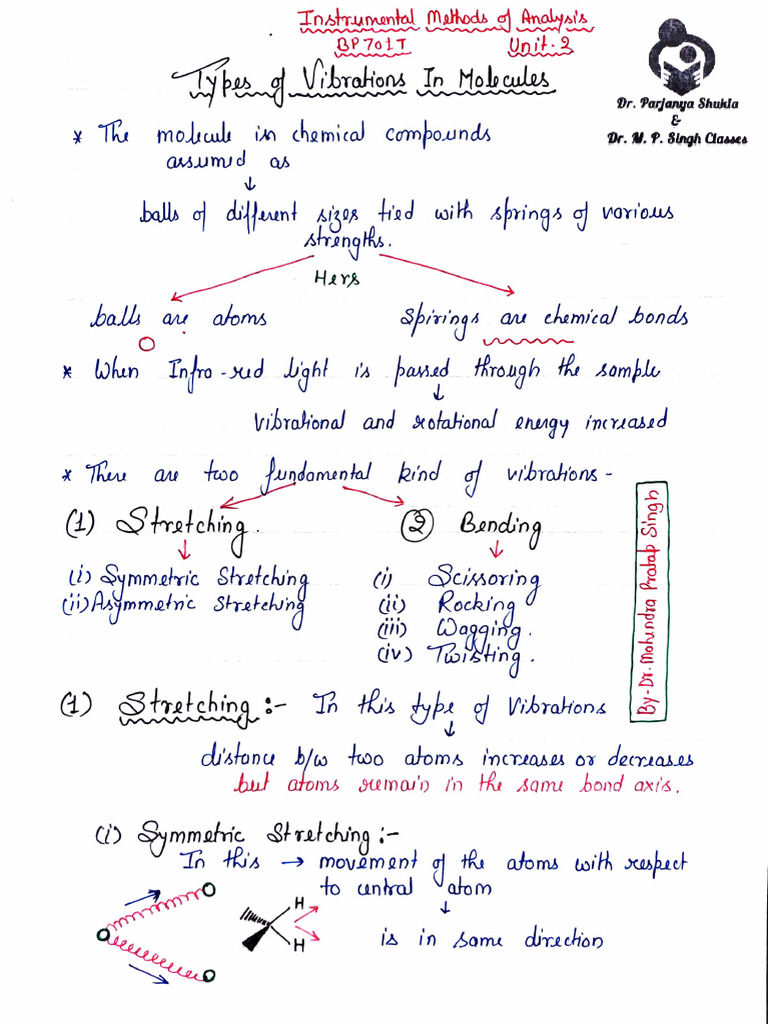 Instrumental Methods of Analysis
BP701T Unit-2
Types of Vibrations In Molecules
Dr. Parjanya Shukla
&
Dr. M. P. Singh Classes
* The molecule in chemical compounds
assumed as
↓
balls of different sizes tied with springs of various
strengths.
Hers
balls are atoms Spirings are chemical bonds
* When Infra-red light is passed through the sample
↓
Vibrational and rotational energy increased
* There are two fundamental kind of vibrations -
(1) Stretching. (2) Bending
(i) Symmetric Stretching (i) Scissoring
(ii) Asymmetric Stretching (ii) Rocking
(iii) Wagging.
(iv) Twisting.
By- Dr. Mahendra Pratap Singh
(1) Stretching :- In this type of Vibrations
↓
distance b/w two atoms increases or decreases
but atoms remain in the same bond axis.
(i) Symmetric Stretching :-
In this → movement of the atoms with respect
to central atom
↓
is in same direction
H
H